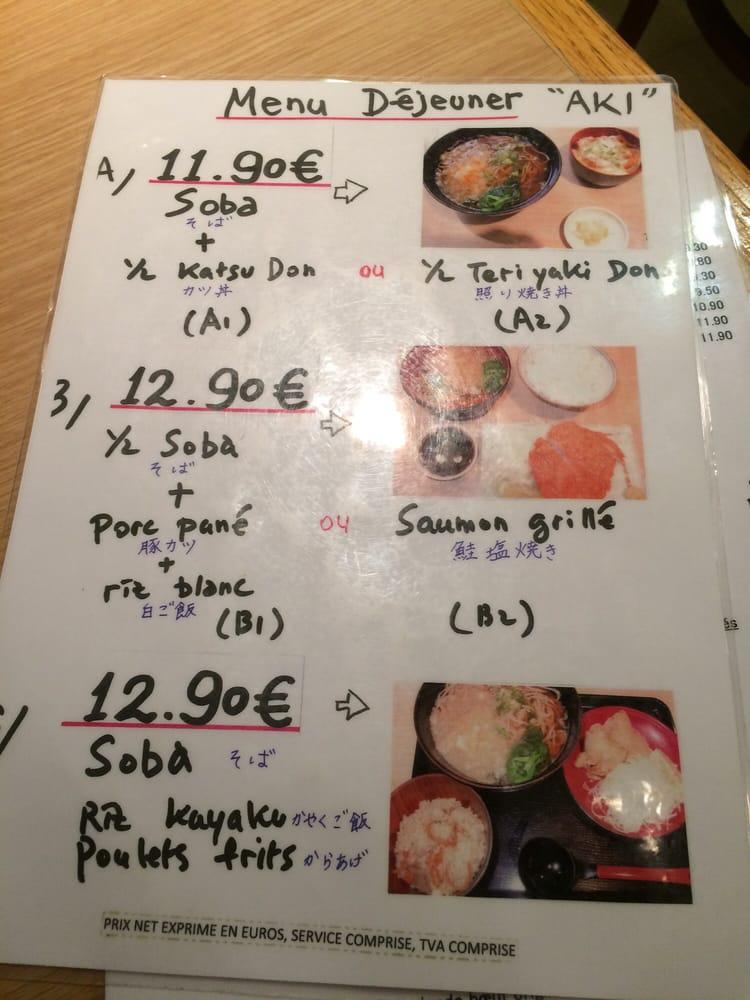 Menu Déjeuner "AKI"
A/ 11.90€
Soba
そば
+
1/2 Katsu Don ou 1/2 Teriyaki Don
カツ丼 照り焼き丼
(A1) (A2)
B/ 12.90€
1/2 Soba
そば
+
Porc pané ou Saumon grillé
豚カツ 鮭塩焼き
+
riz blanc
白ご飯
(B1) (B2)
12.90€
Soba そば
Riz Kayaku かやくご飯
Poulets frits からあげ
PRIX NET EXPRIME EN EUROS, SERVICE COMPRISE, TVA COMPRISE
.30
.80
.30
9.50
10.90
11.90
11.90